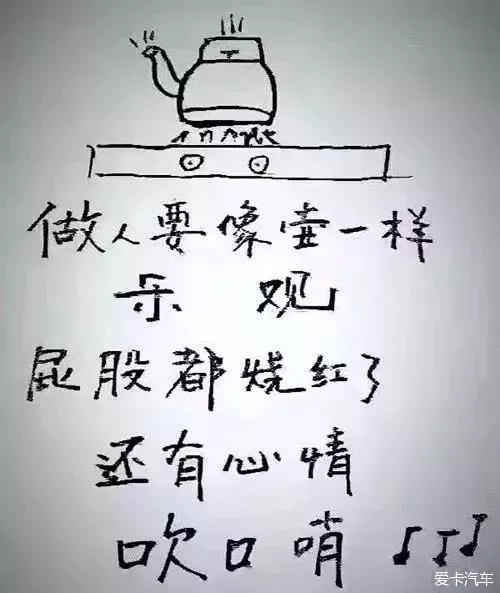 做人要像壶一样
乐 观
屁股都烧红了
还有心情
吹口哨
爱卡汽车